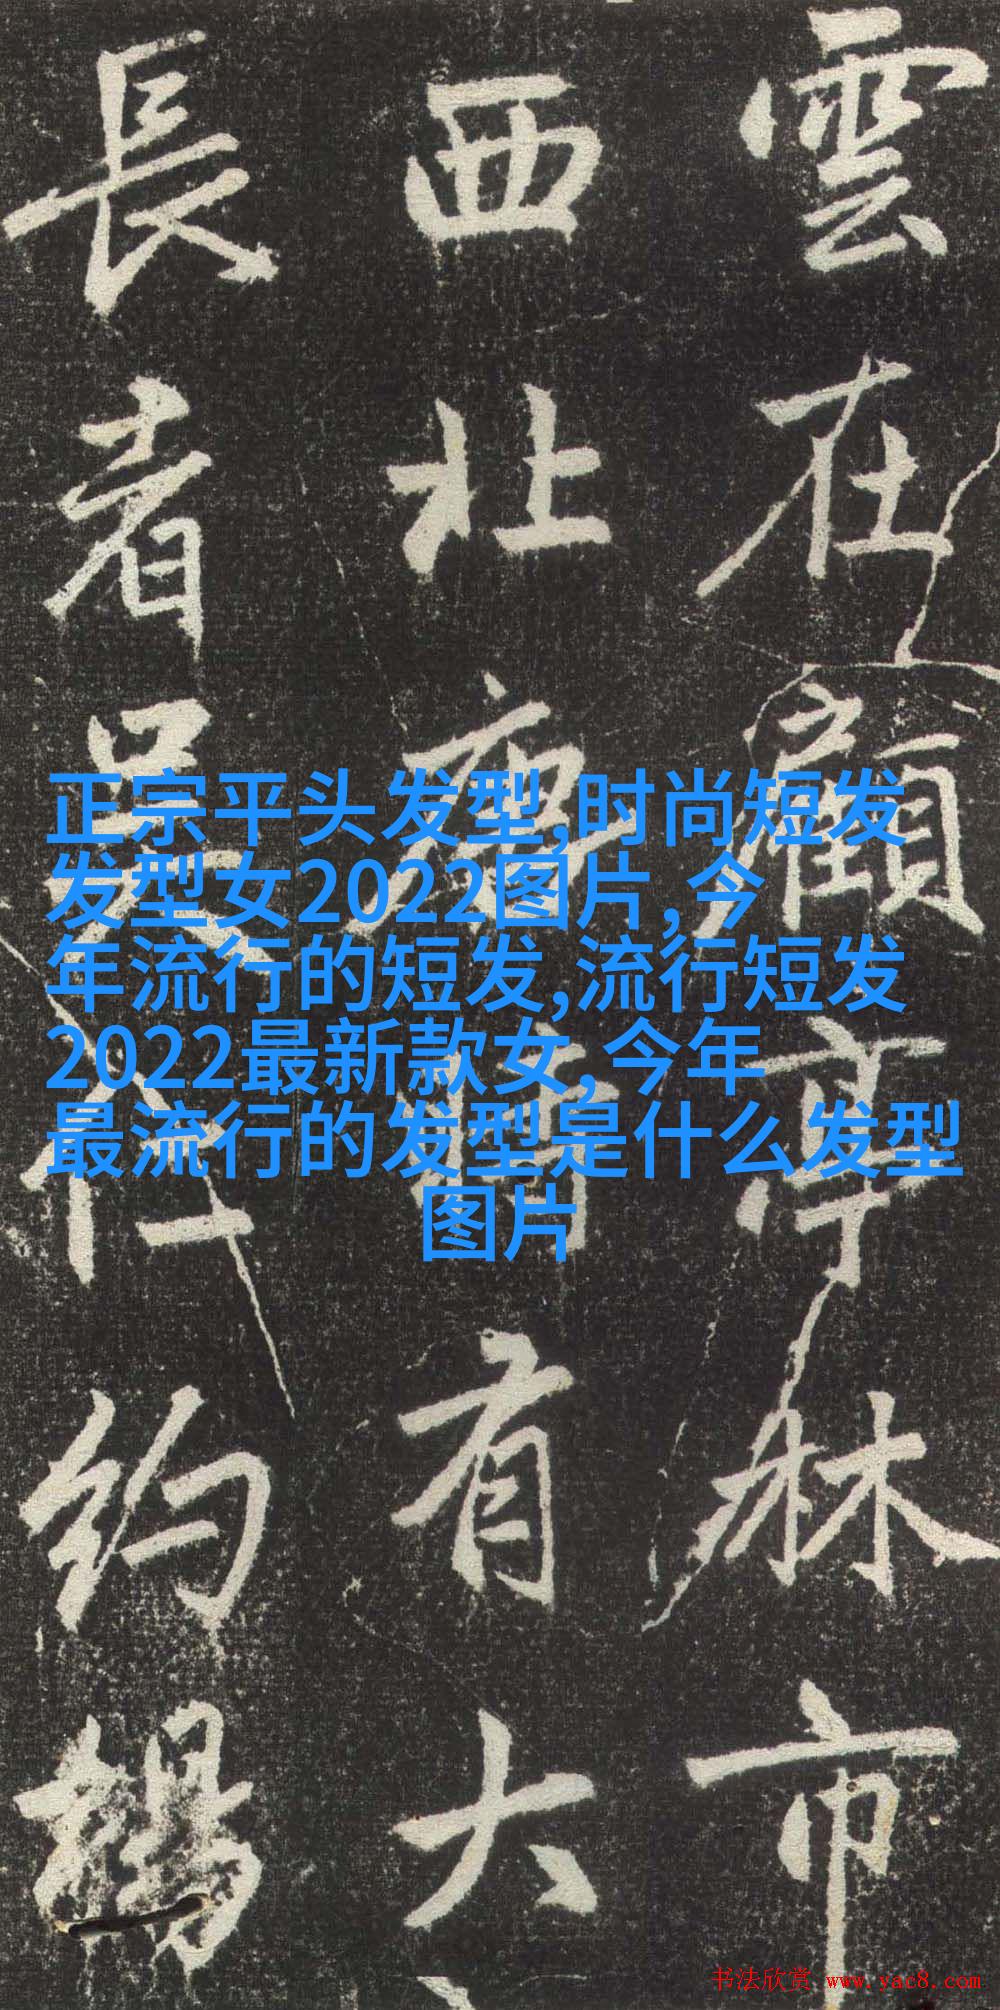 雲在顧亭林市
西北有大
長者吳仁約
正宗平头发型,时尚短发
发型女2022图片,今
年流行的短发,流行短发
2022最新款女,今年
最流行的发型是什么发型
图片
书法欣赏 www.yac8.com